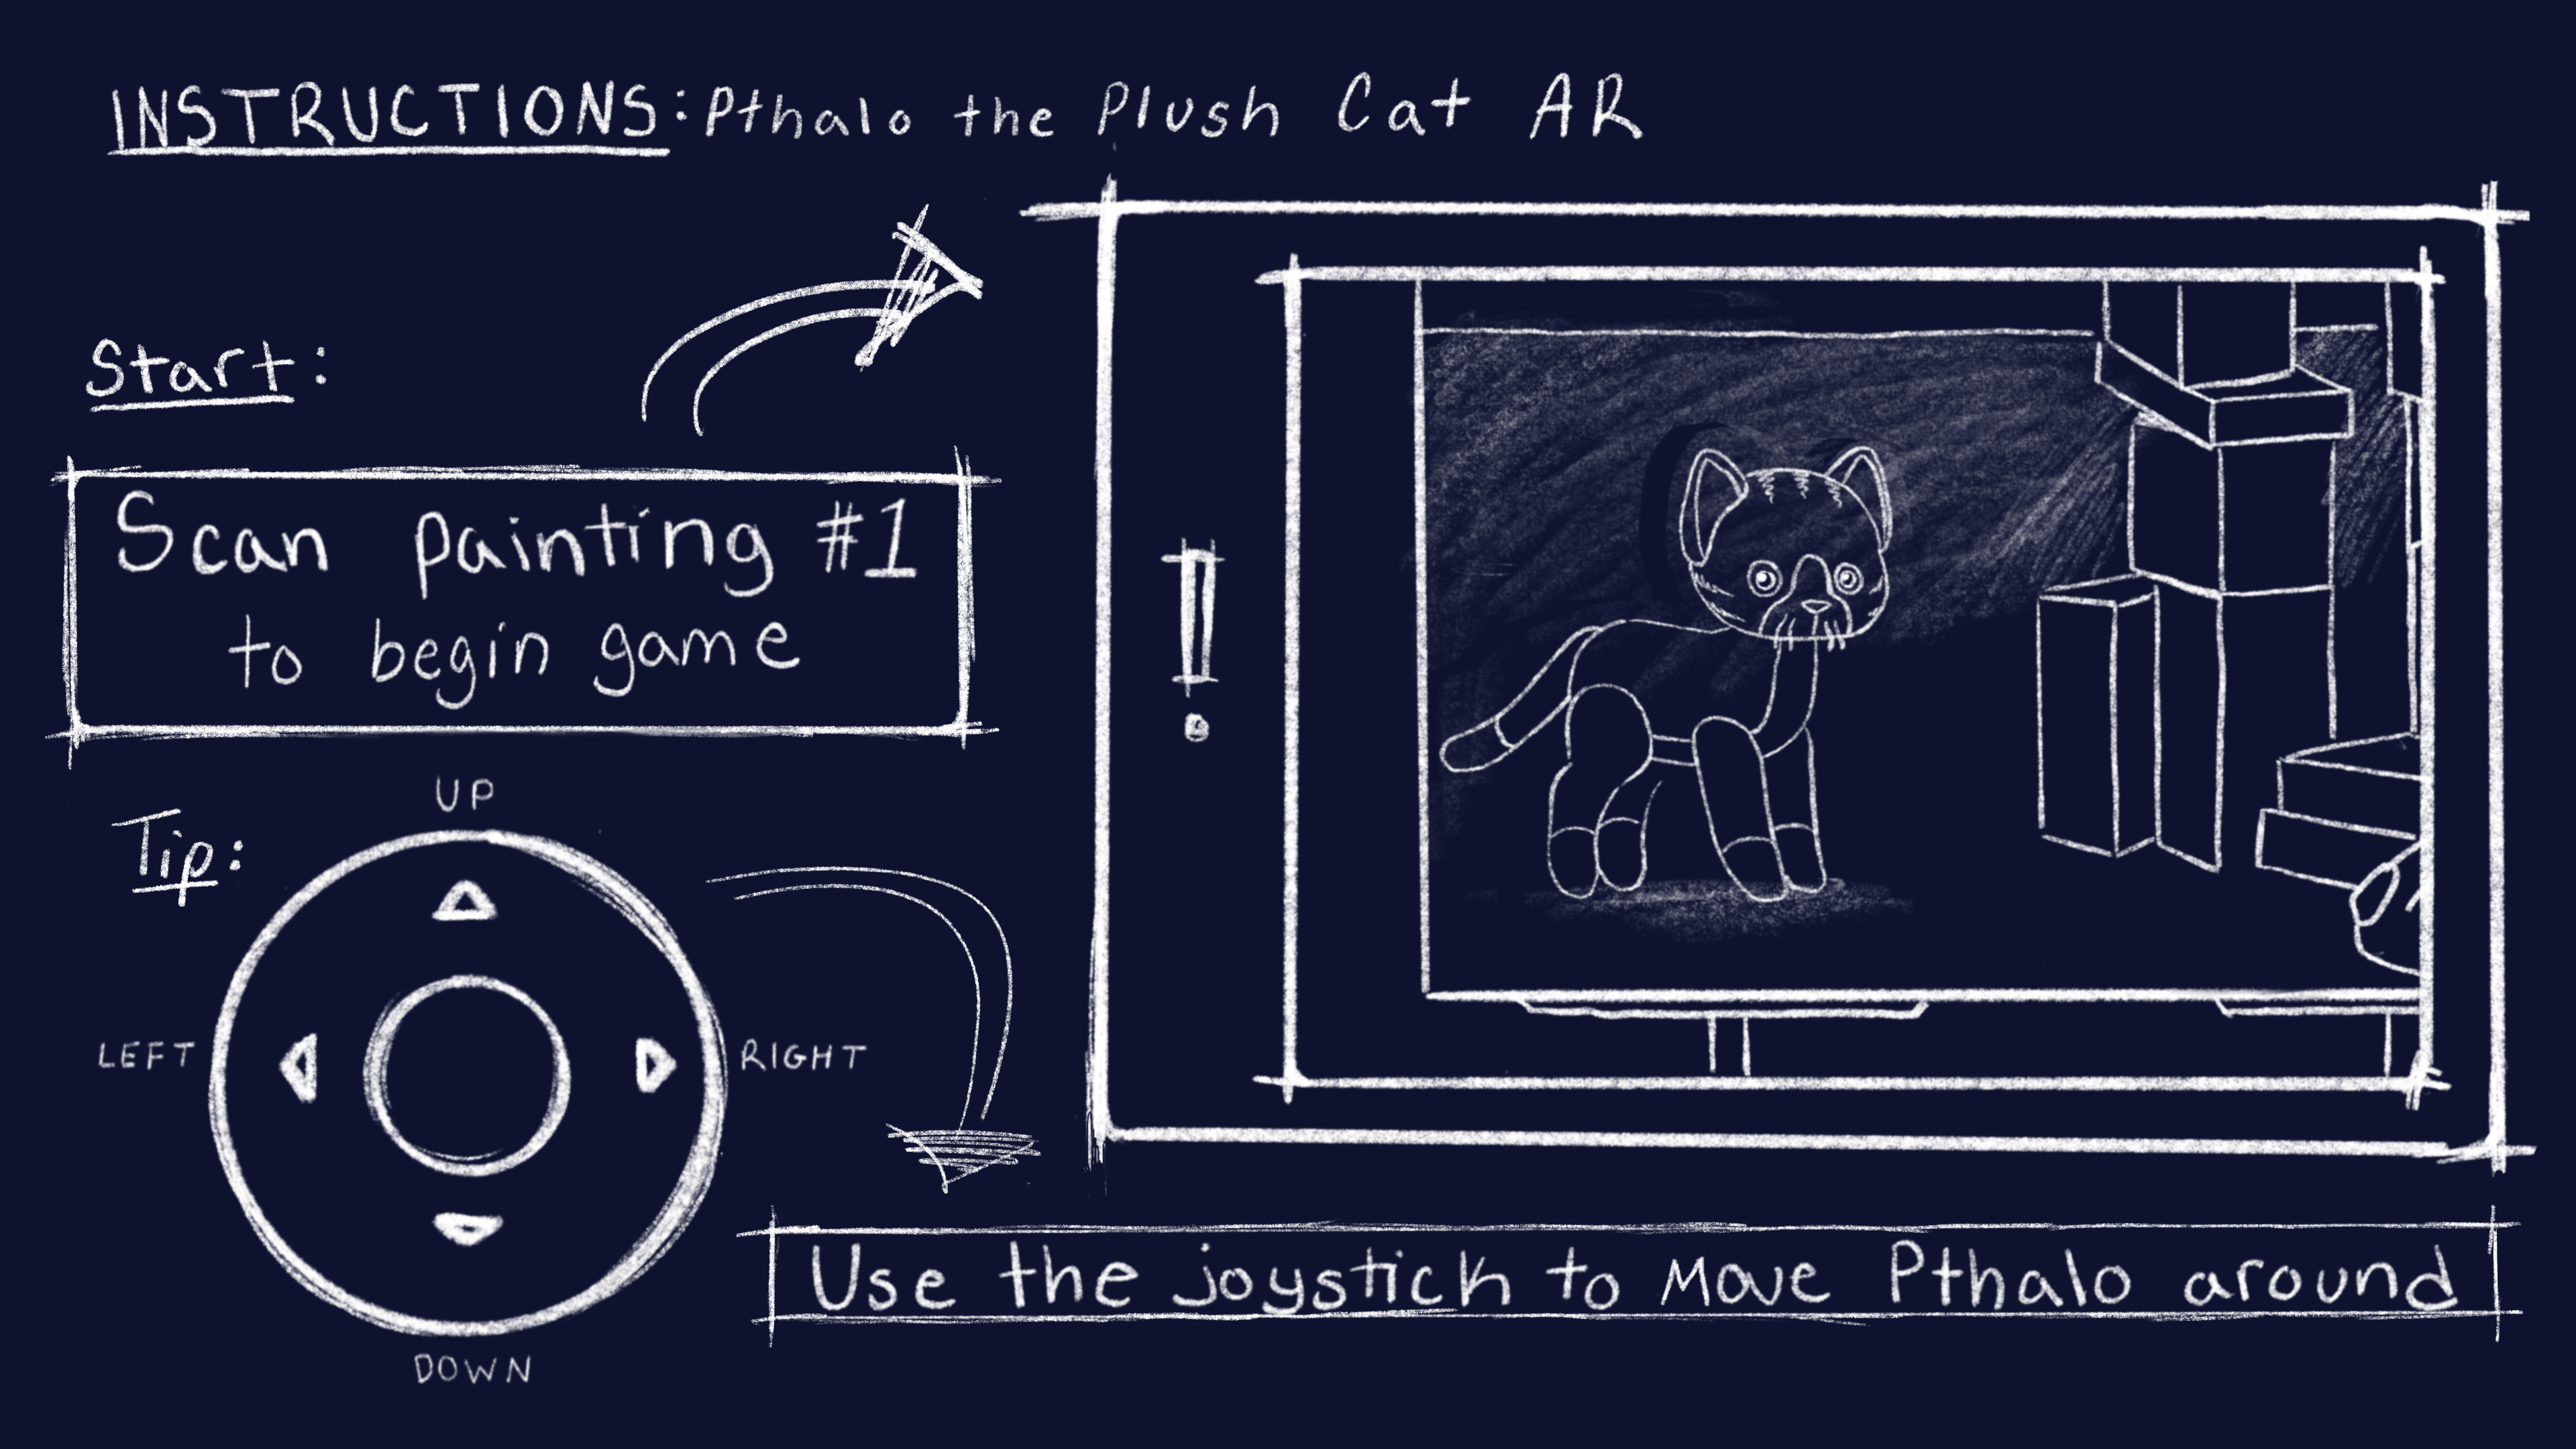 INSTRUCTIONS: Pthalo the Plush Cat AR
Start:
Scan painting #1
to begin game
!
Tip:
UP
LEFT
RIGHT
DOWN
Use the joystick to Move Pthalo around